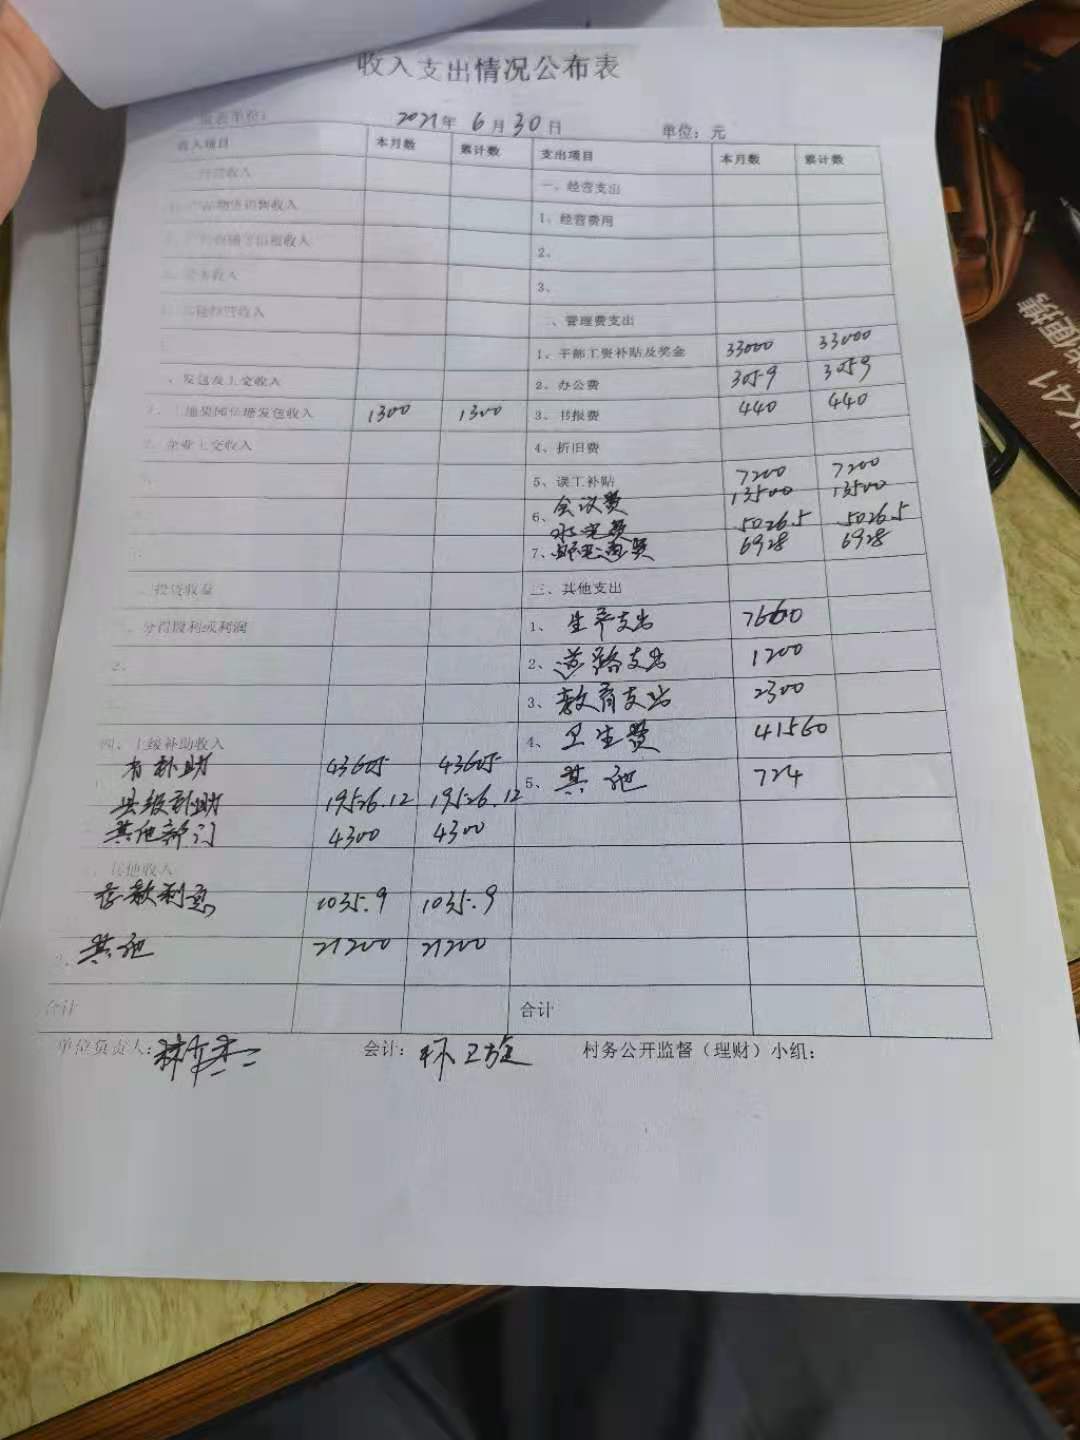 收入支出情况公布表
2021年6月30日 单位：元
收入项目 本月数 累计数 支出项目 本月数 累计数
一、经营支出
1、经营费用
2、
3、
管理费支出
1、干部工资补贴及奖金 33000 33000
、发包及上交收入 2、办公费 3059 3059
发包收入 1300 1300 3、书报费 440 440
2、企业上交收入 4、折旧费
5、误工补贴 7200 7200
6、会议费 13500 13500
水电费 5026.5 5026.5
7、邮电通费 6928 6928
投资收益 三、其他支出
分得股利或利润 1、生产支出 7660
2、 2、道路支出 1200
3、教育支出 2300
四、上级补助收入 4、卫生费 41560
补助 43605 43605 5、其他 724
县级补助 19526.12 19526.12
其他部门 4300 4300
其他收入
存款利息 1035.9 1035.9
其他 21200 21200
合计 合计
单位负责人： 会计： 村务公开监督（理财）小组：
K41